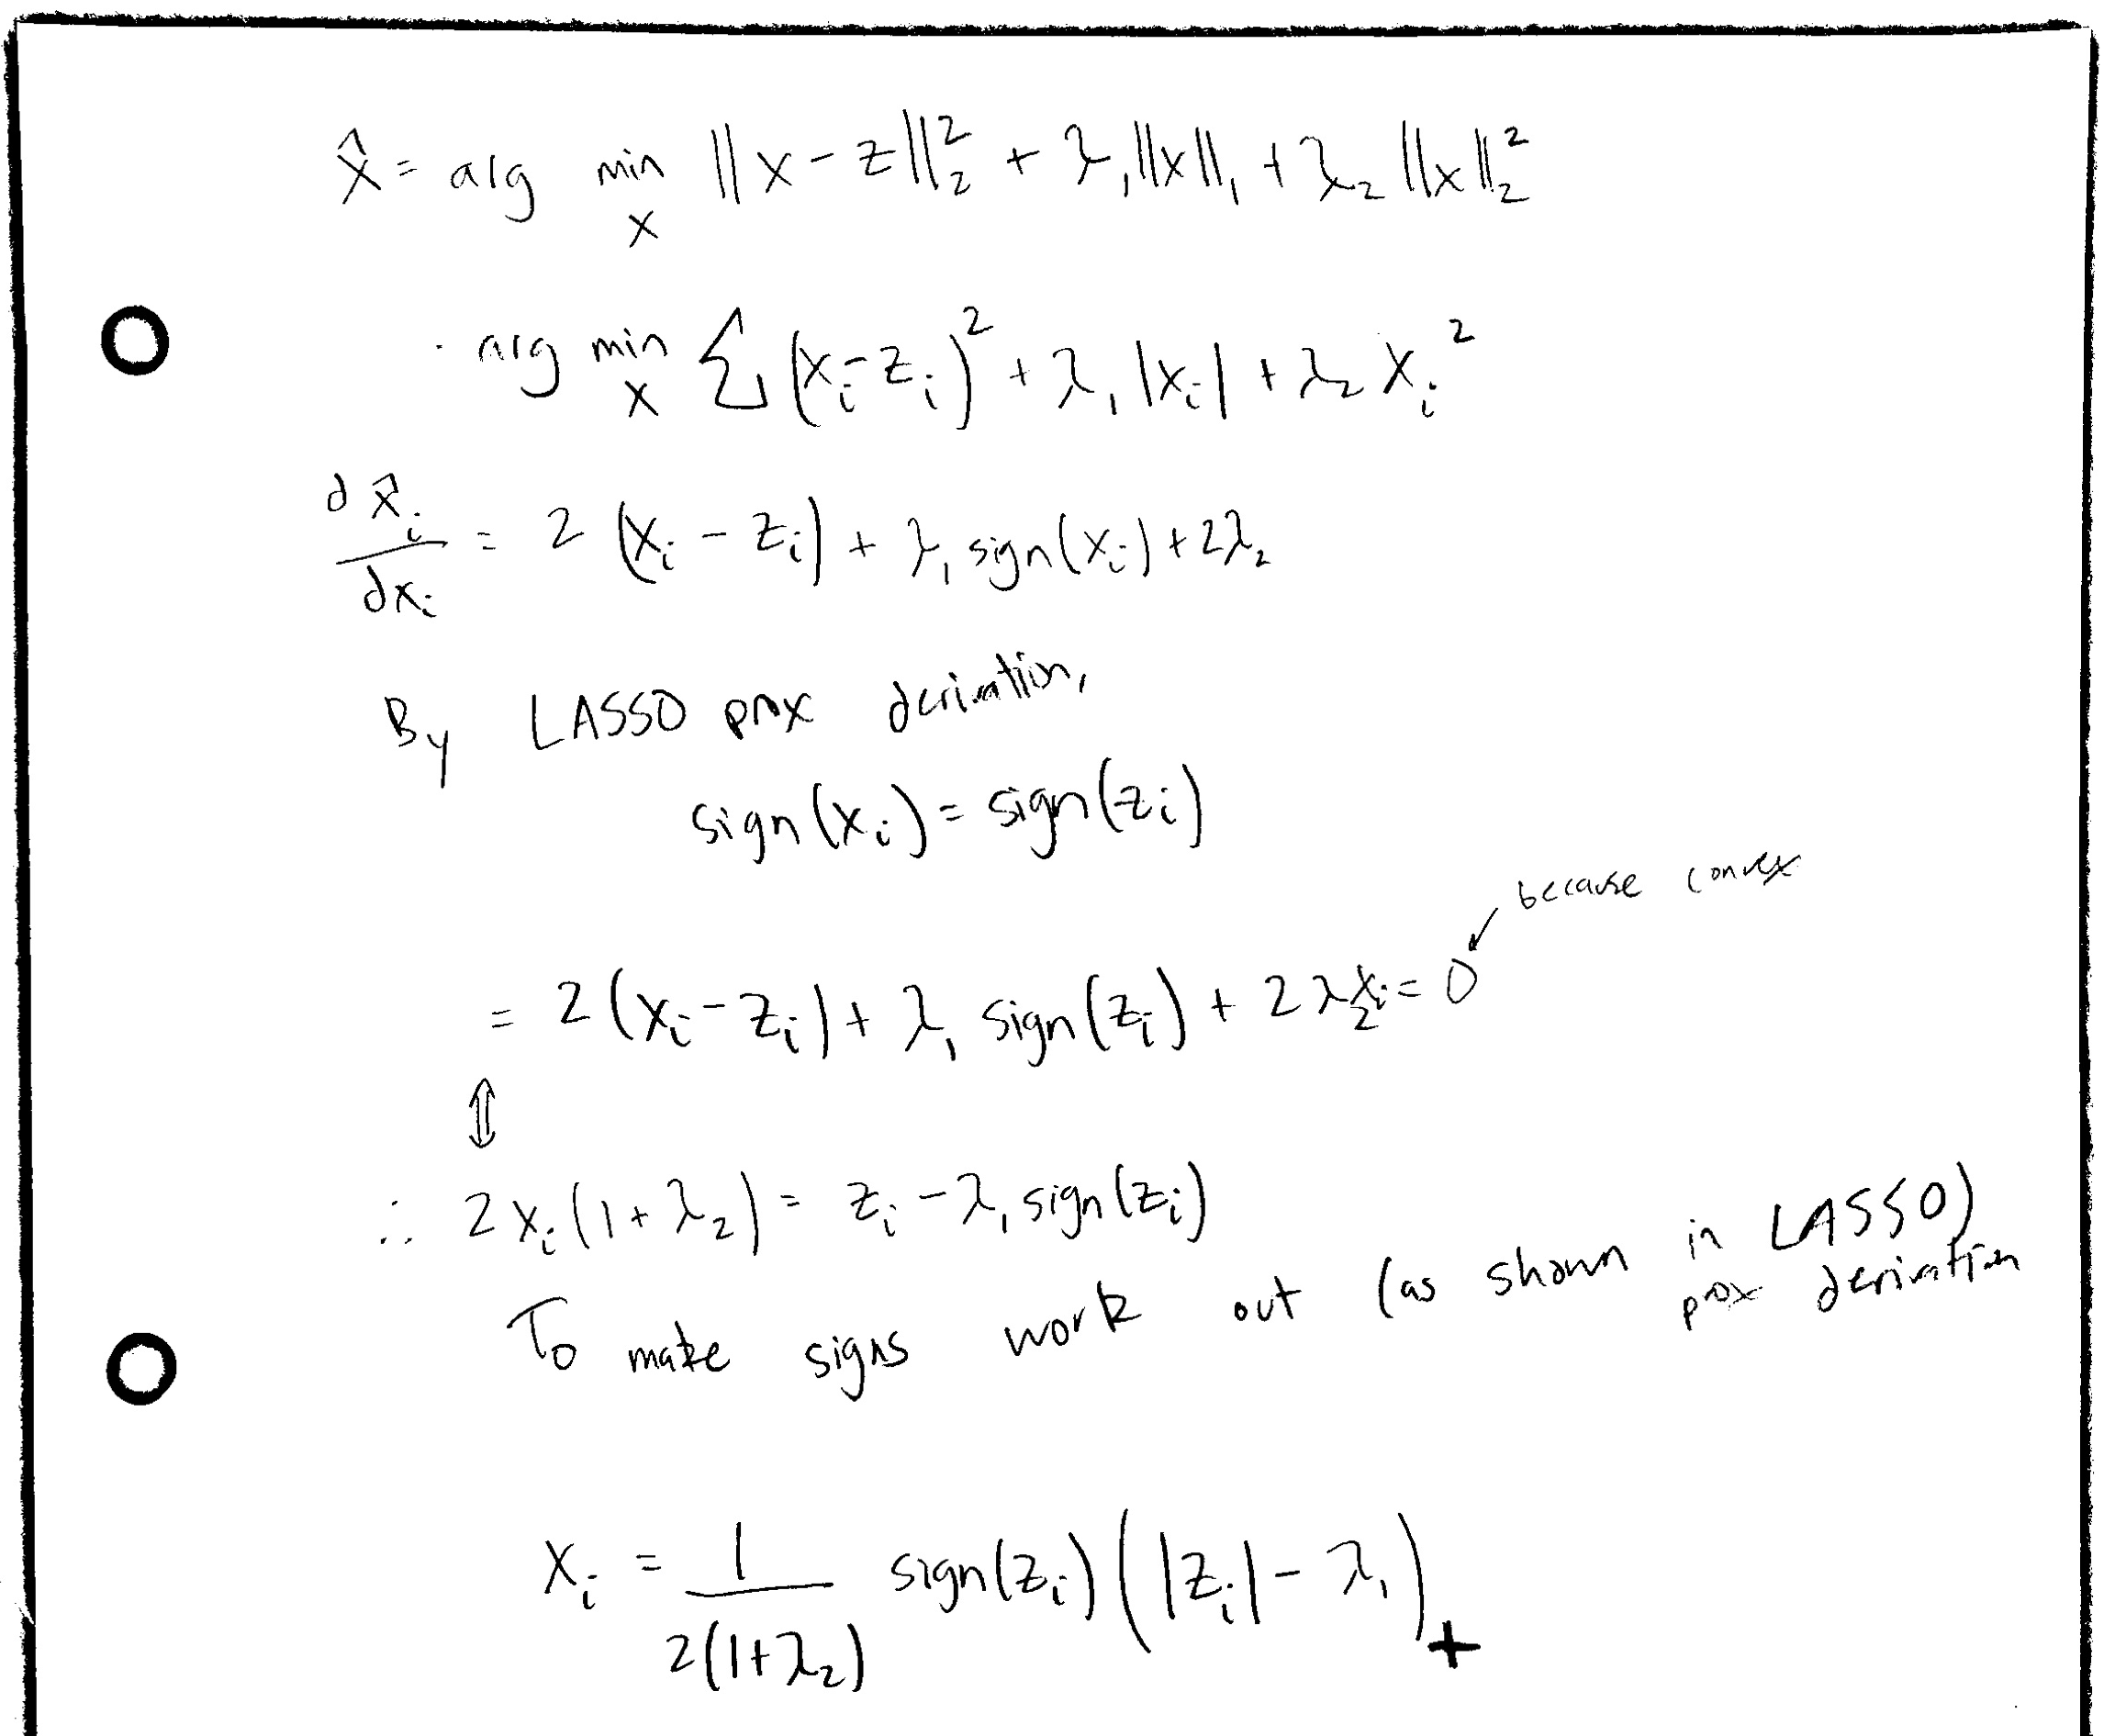 x̂ = arg min_x ||x - z||₂² + λ₁||x||₁ + λ₂||x||₂²
arg min_x Σ (xᵢ - zᵢ)² + λ₁|xᵢ| + λ₂ xᵢ²
∂x̂ᵢ/∂xᵢ = 2(xᵢ - zᵢ) + λ₁ sign(xᵢ) + 2λ₂
By LASSO prox derivation,
sign(xᵢ) = sign(zᵢ)
because convex
= 2(xᵢ - zᵢ) + λ₁ sign(zᵢ) + 2λ₂xᵢ = 0
⇕
∴ 2xᵢ(1 + λ₂) = zᵢ - λ₁ sign(zᵢ)
To make signs work out (as shown in LASSO)
prox derivation
xᵢ = 1/(2(1+λ₂)) sign(zᵢ)(|zᵢ| - λ₁)₊